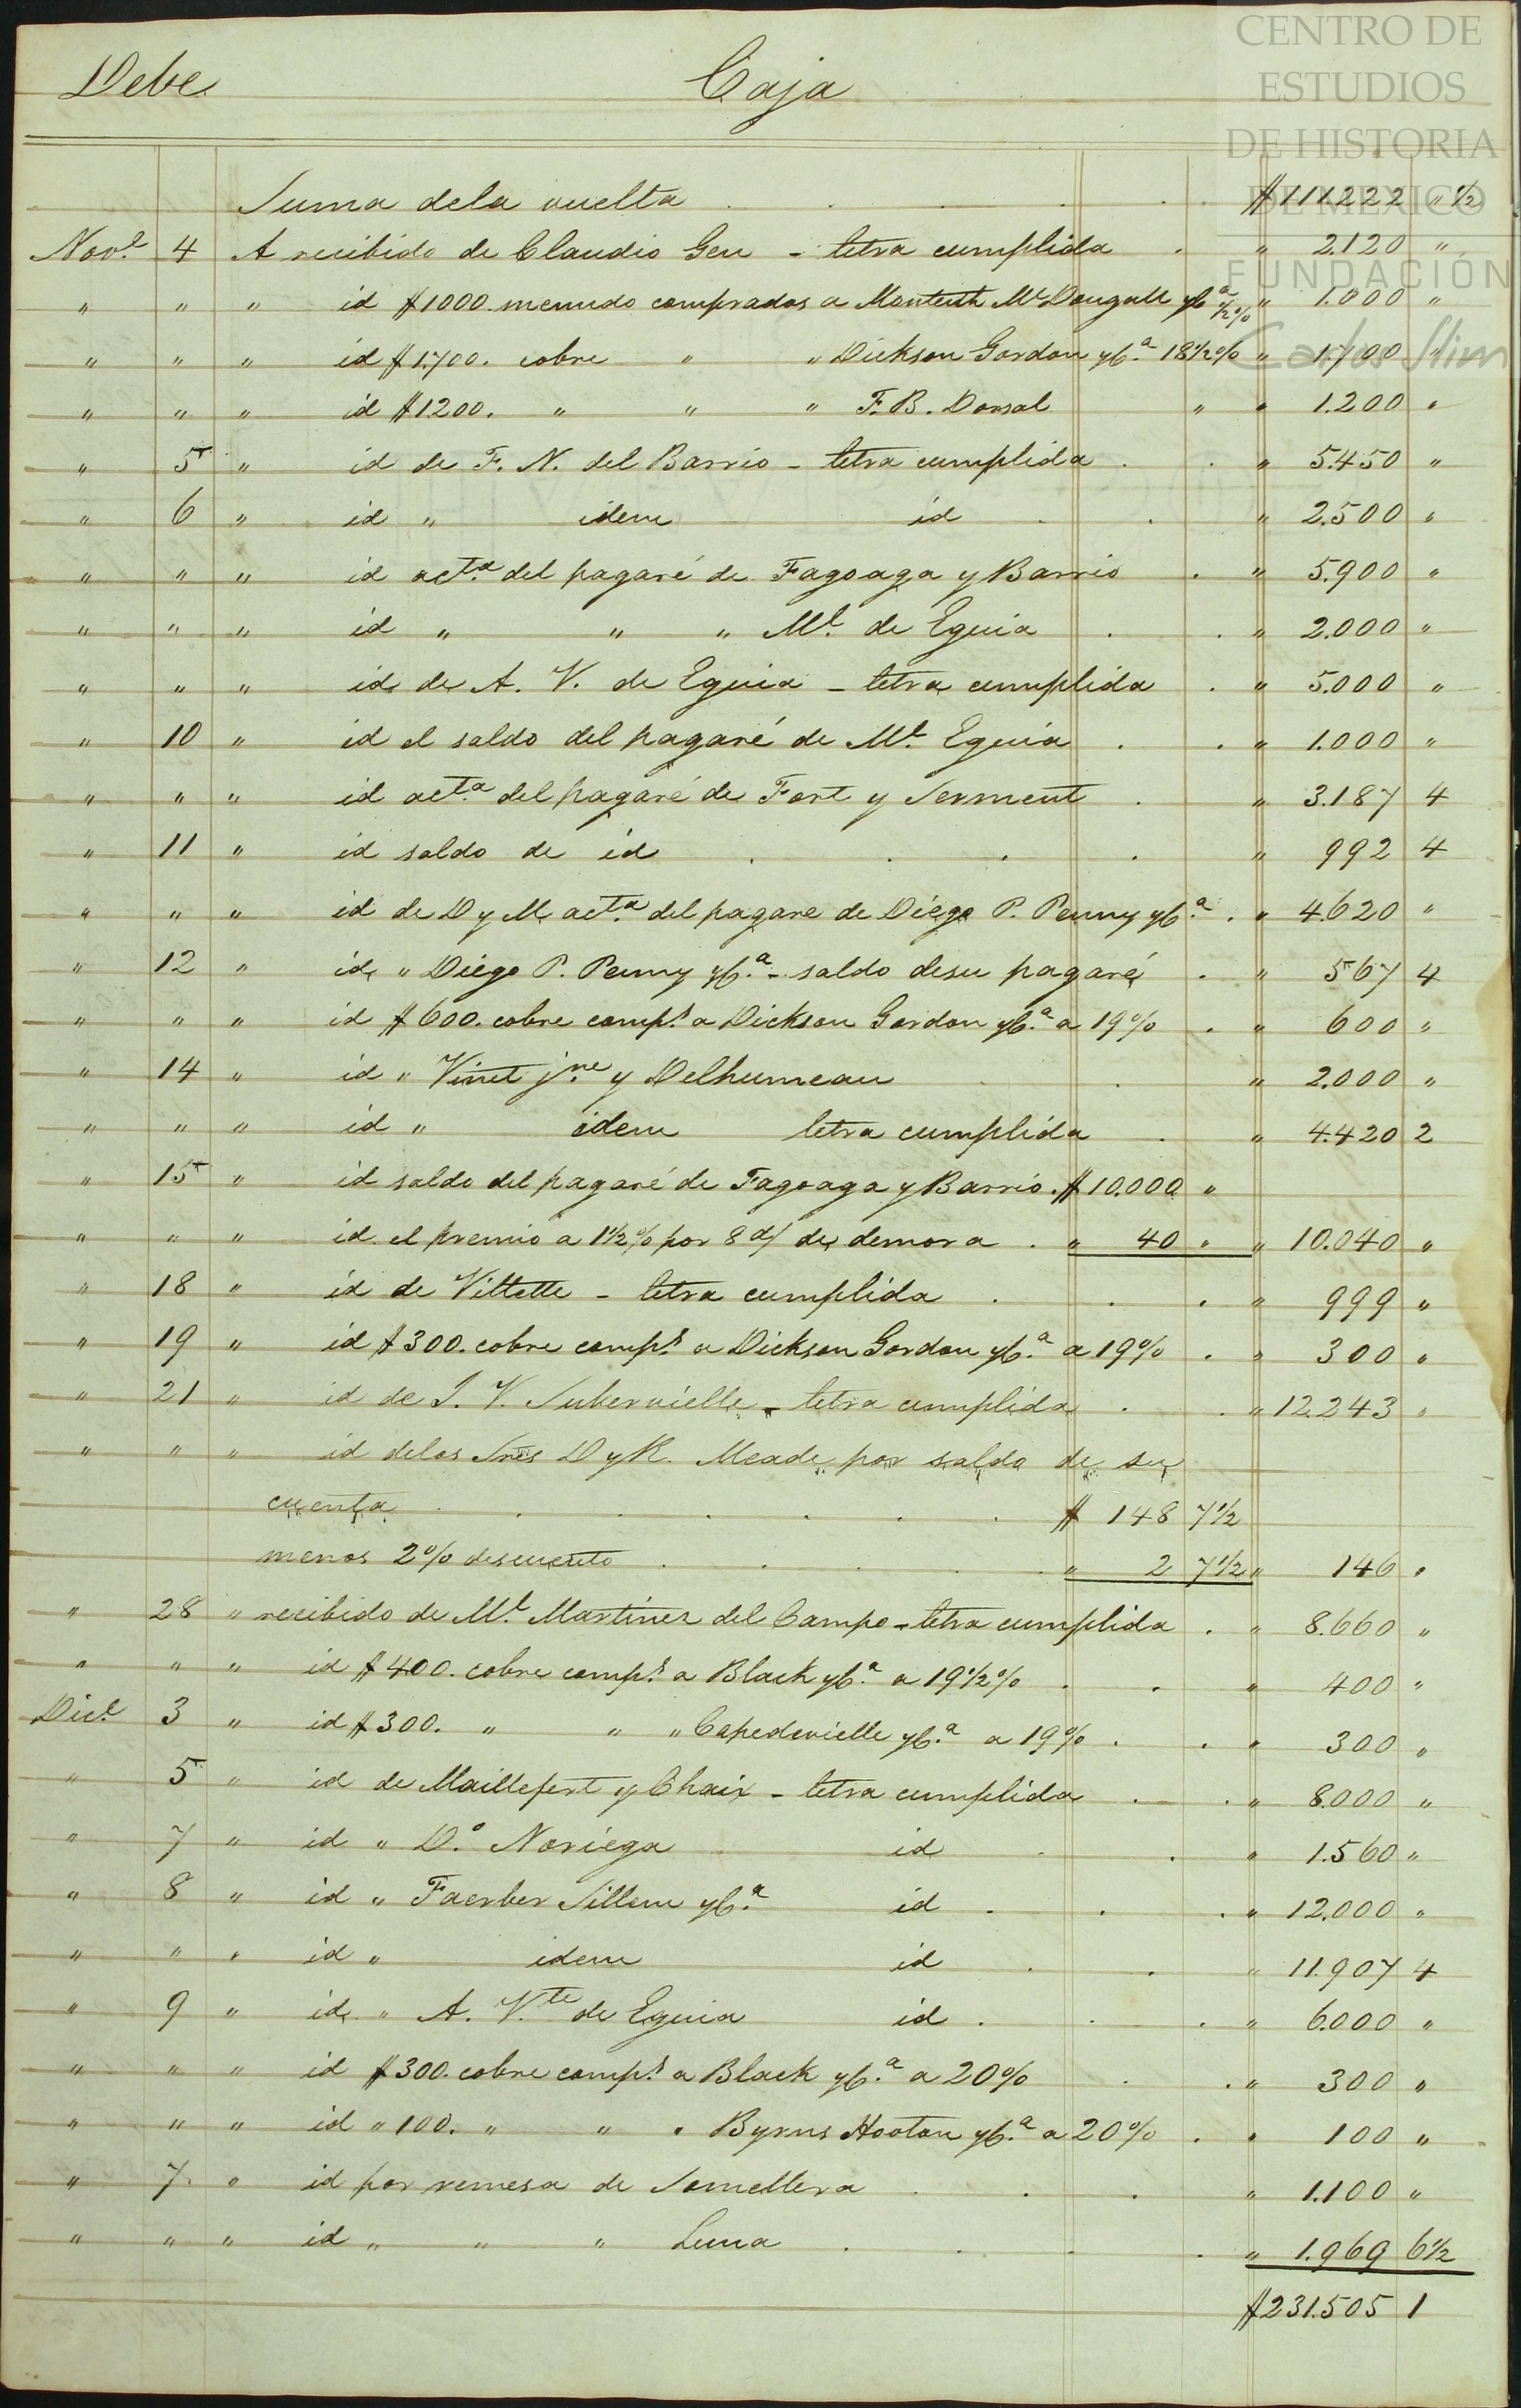 CENTRO DE
ESTUDIOS
DE HISTORIA
DE MEXICO
FUNDACIÓN
Carlos Slim
Debe Caja
Suma dela vuelta . . . . . $ 111.222 " ½
Nov.e 4 A recibido de Claudio Gen - letra cumplida . " 2.120 "
" " " id $1000. menudo comprados a Monteith McDougall yC.a ½% " 1.000 "
" " " id $1.700. cobre " " Dickson Gordon yC.a 18½% " 1.700 "
" " " id $1200. " " " F. B. Dorsal " " 1.200 "
" 5 " id de F. N. del Barrio - letra cumplida . . " 5.450 "
" 6 " id " idem id . . " 2.500 "
" " " id act.a del pagaré de Fagoaga y Barrio . " 5.900 "
" " " id " " " Ml. de Eguia . . " 2.000 "
" " " id de A. V. de Eguia - letra cumplida . " 5.000 "
" 10 " id el saldo del pagaré de Ml. Eguia . . " 1.000 "
" " " id act.a del pagaré de Fort y Serment . " 3.187 4
" 11 " id saldo de id . . . . " 992 4
" " " id de D y M act.a del pagare de Diego P. Penny yC.a . " 4.620 "
" 12 " id " Diego P. Penny yC.a - saldo desu pagaré . " 567 4
" " " id $600. cobre comp.s a Dickson Gordon yC.a a 19% . " 600 "
" 14 " id " Vinet jne y Delhumeau . " 2.000 "
" " " id " idem letra cumplida . " 4.420 2
" 15 " id saldo del pagaré de Fagoaga y Barrio. $ 10.000 "
" " " id el premio a 1½% por 8 d/ de demora . " 40 " " 10.040 "
" 18 " id de Villette - letra cumplida . . . " 999 "
" 19 " id $300. cobre comp.s a Dickson Gordon yC.a a 19% . " 300 "
" 21 " id de J. V. Subervielle - letra cumplida . . " 12.243 "
" " " id delos Sres D y R. Meade por saldo de su
cuenta . . . . . . $ 148 7½
menos 2% descuento . . . . " 2 7½ " 146 "
" 28 " recibido de Ml. Martinez del Campo - letra cumplida . " 8.660 "
" " " id $400. cobre comp.s a Black yC.a a 19½% . . " 400 "
Dic.e 3 " id $300. " " " Capedevielle yC.a a 19% . . " 300 "
" 5 " id de Maillefert y Chaix - letra cumplida . . " 8.000 "
" 7 " id " D.o Noriega id . . " 1.560 "
" 8 " id " Faerber Sillem yC.a id . . . " 12.000 "
" " " id " idem id . . " 11.907 4
" 9 " id " A. V.te de Eguia id . . . " 6.000 "
" " " id $300. cobre comp.s a Black yC.a a 20% . . " 300 "
" " " id " 100. " " " Byrns Hooton yC.a a 20% . " 100 "
" 7 " id por remesa de Somellera . . . " 1.100 "
" " " id " " " Luna . . . . " 1.969 6½
$ 231.505 1